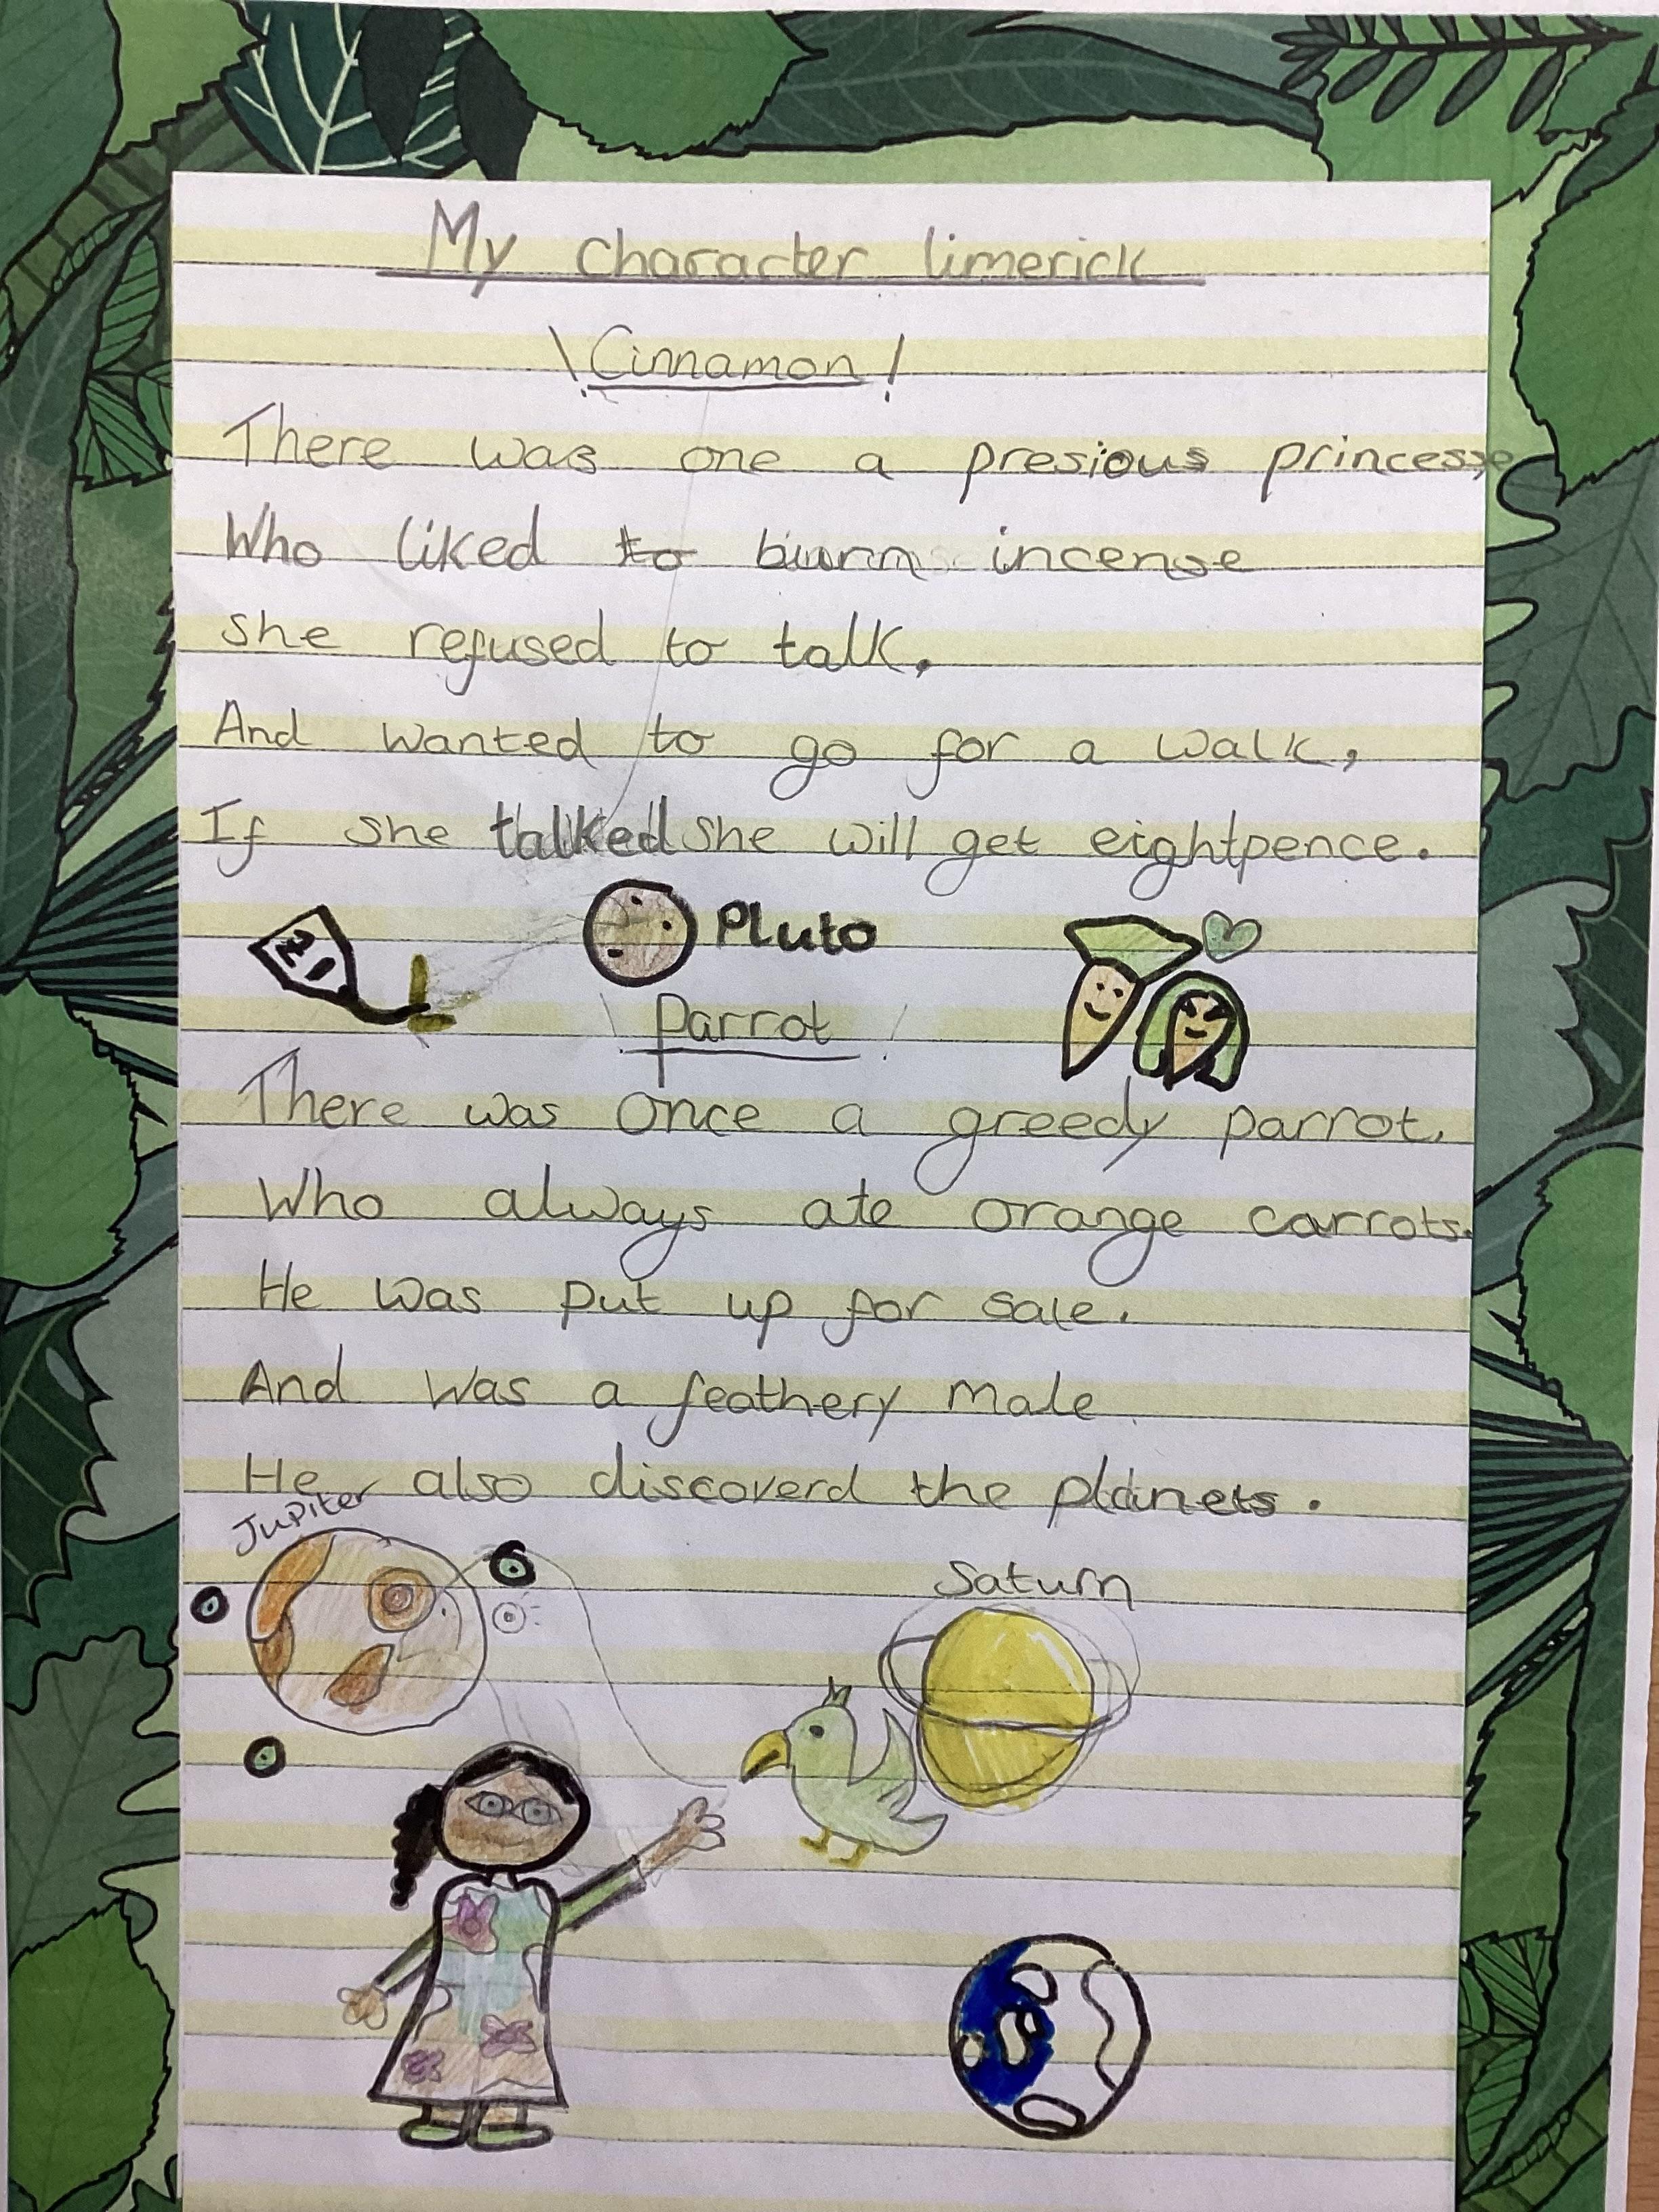 My character limerick
\Cinnamon!
There was one a presious princesse
Who liked to burn incense
she refused to talk,
And wanted to go for a walk,
If she talked she will get eightpence.
21
Pluto
Parrot
There was once a greedy parrot.
Who always ate orange carrots.
He was put up for sale.
And was a feathery male
He also discoverd the planets.
Jupiter
Saturn